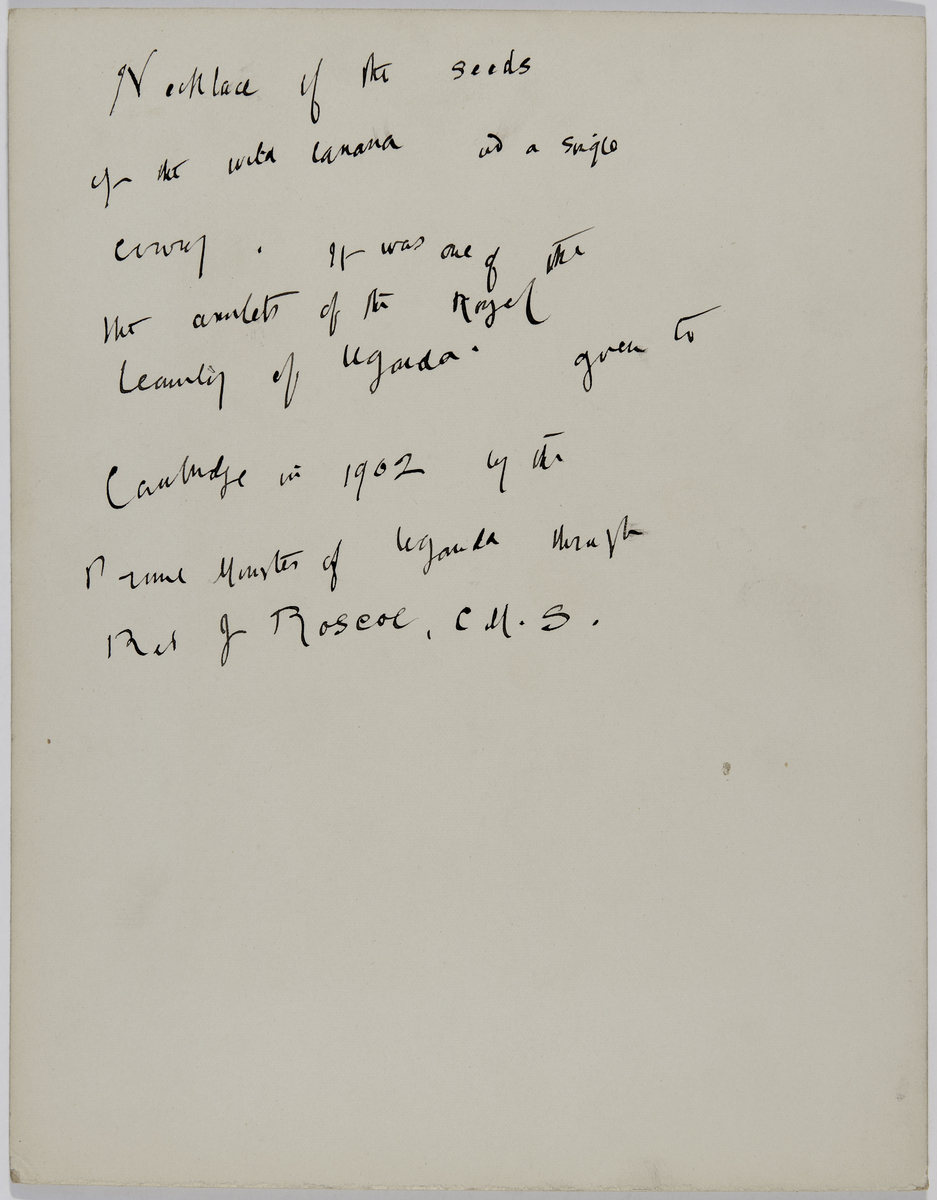 Necklace of the seeds
of the wild banana and a single
cowry. It was one of the
the amulets of the Royal
family of Uganda. given to
Cambridge in 1902 by the
Prime Minister of Uganda through
Rev J Roscoe, C.M.S.